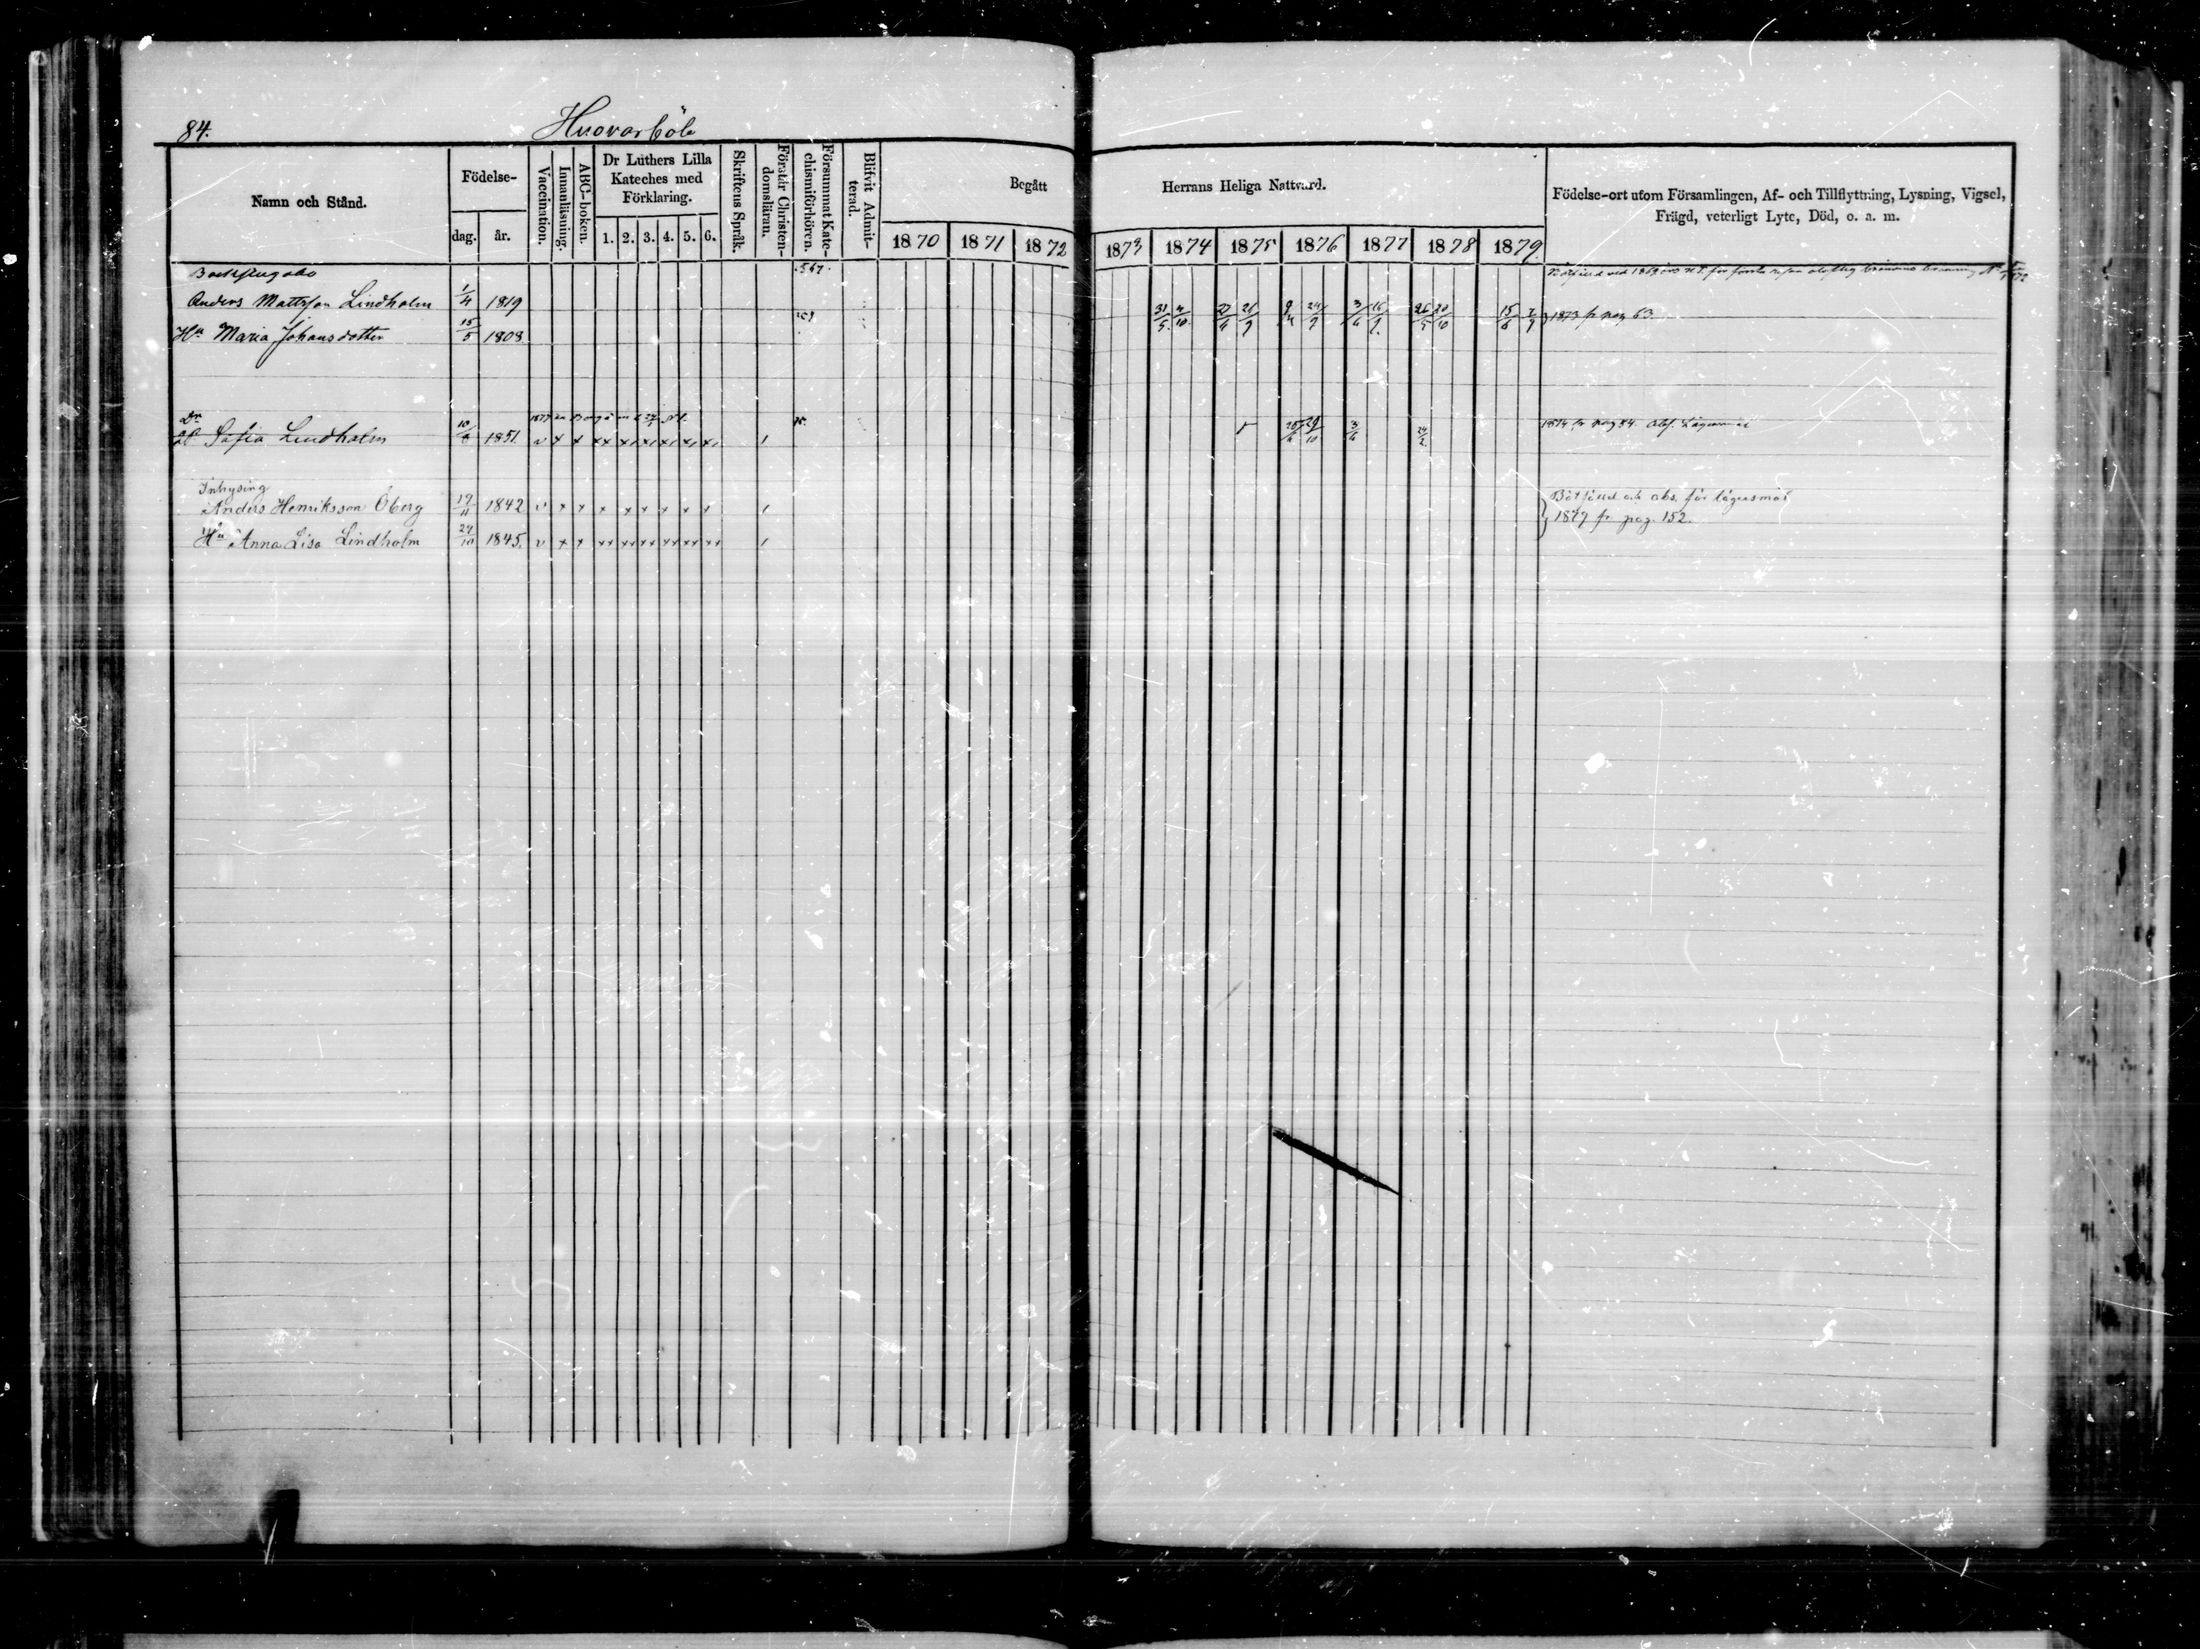 84.
Husvarböle
Namn och Stånd.
Födelse-
dag.
år.
Vaccination.
Innanläsning.
ABC-boken.
Dr Luthers Lilla
Kateches med
Förklaring.
1. 2. 3. 4. 5. 6.
Skriftens Språk.
Förstår Christen-
domsläran.
Försummat Kate-
chismiförhören.
Blifvit Admit-
terad.
Begått
Herrans Heliga Nattvard.
1870 1871 1872 1873 1874 1875 1876 1877 1878 1879.
Födelse-ort utom Församlingen, Af- och Tillflyttning, Lysning, Vigsel,
Frägd, veterligt Lyte, Död, o. a. m.
567.
Anders Mattsson Lindholm 1/4 1819
31/5 4/10 26/9 24/9 3/6 16/9 26/5 20/10 15/6 7/9 } 1873 fr pag 63.
Hu Maria Johansdotter 15/5 1808
Dr
Sofia Lindholm 10/8 1851. v x x xx x, x, x, x, x, /
29/10 3/6 24/2
1874 fr pag 84.
Inhysing
Anders Henriksson Öberg 19/11 1842 v x x x x x x x x /
Bötfälld och abs. för lägersmål
Hu Anna Lisa Lindholm 24/10 1845. v x x xx xx xx xx xx xx /
} 1879 fr. pag. 152.